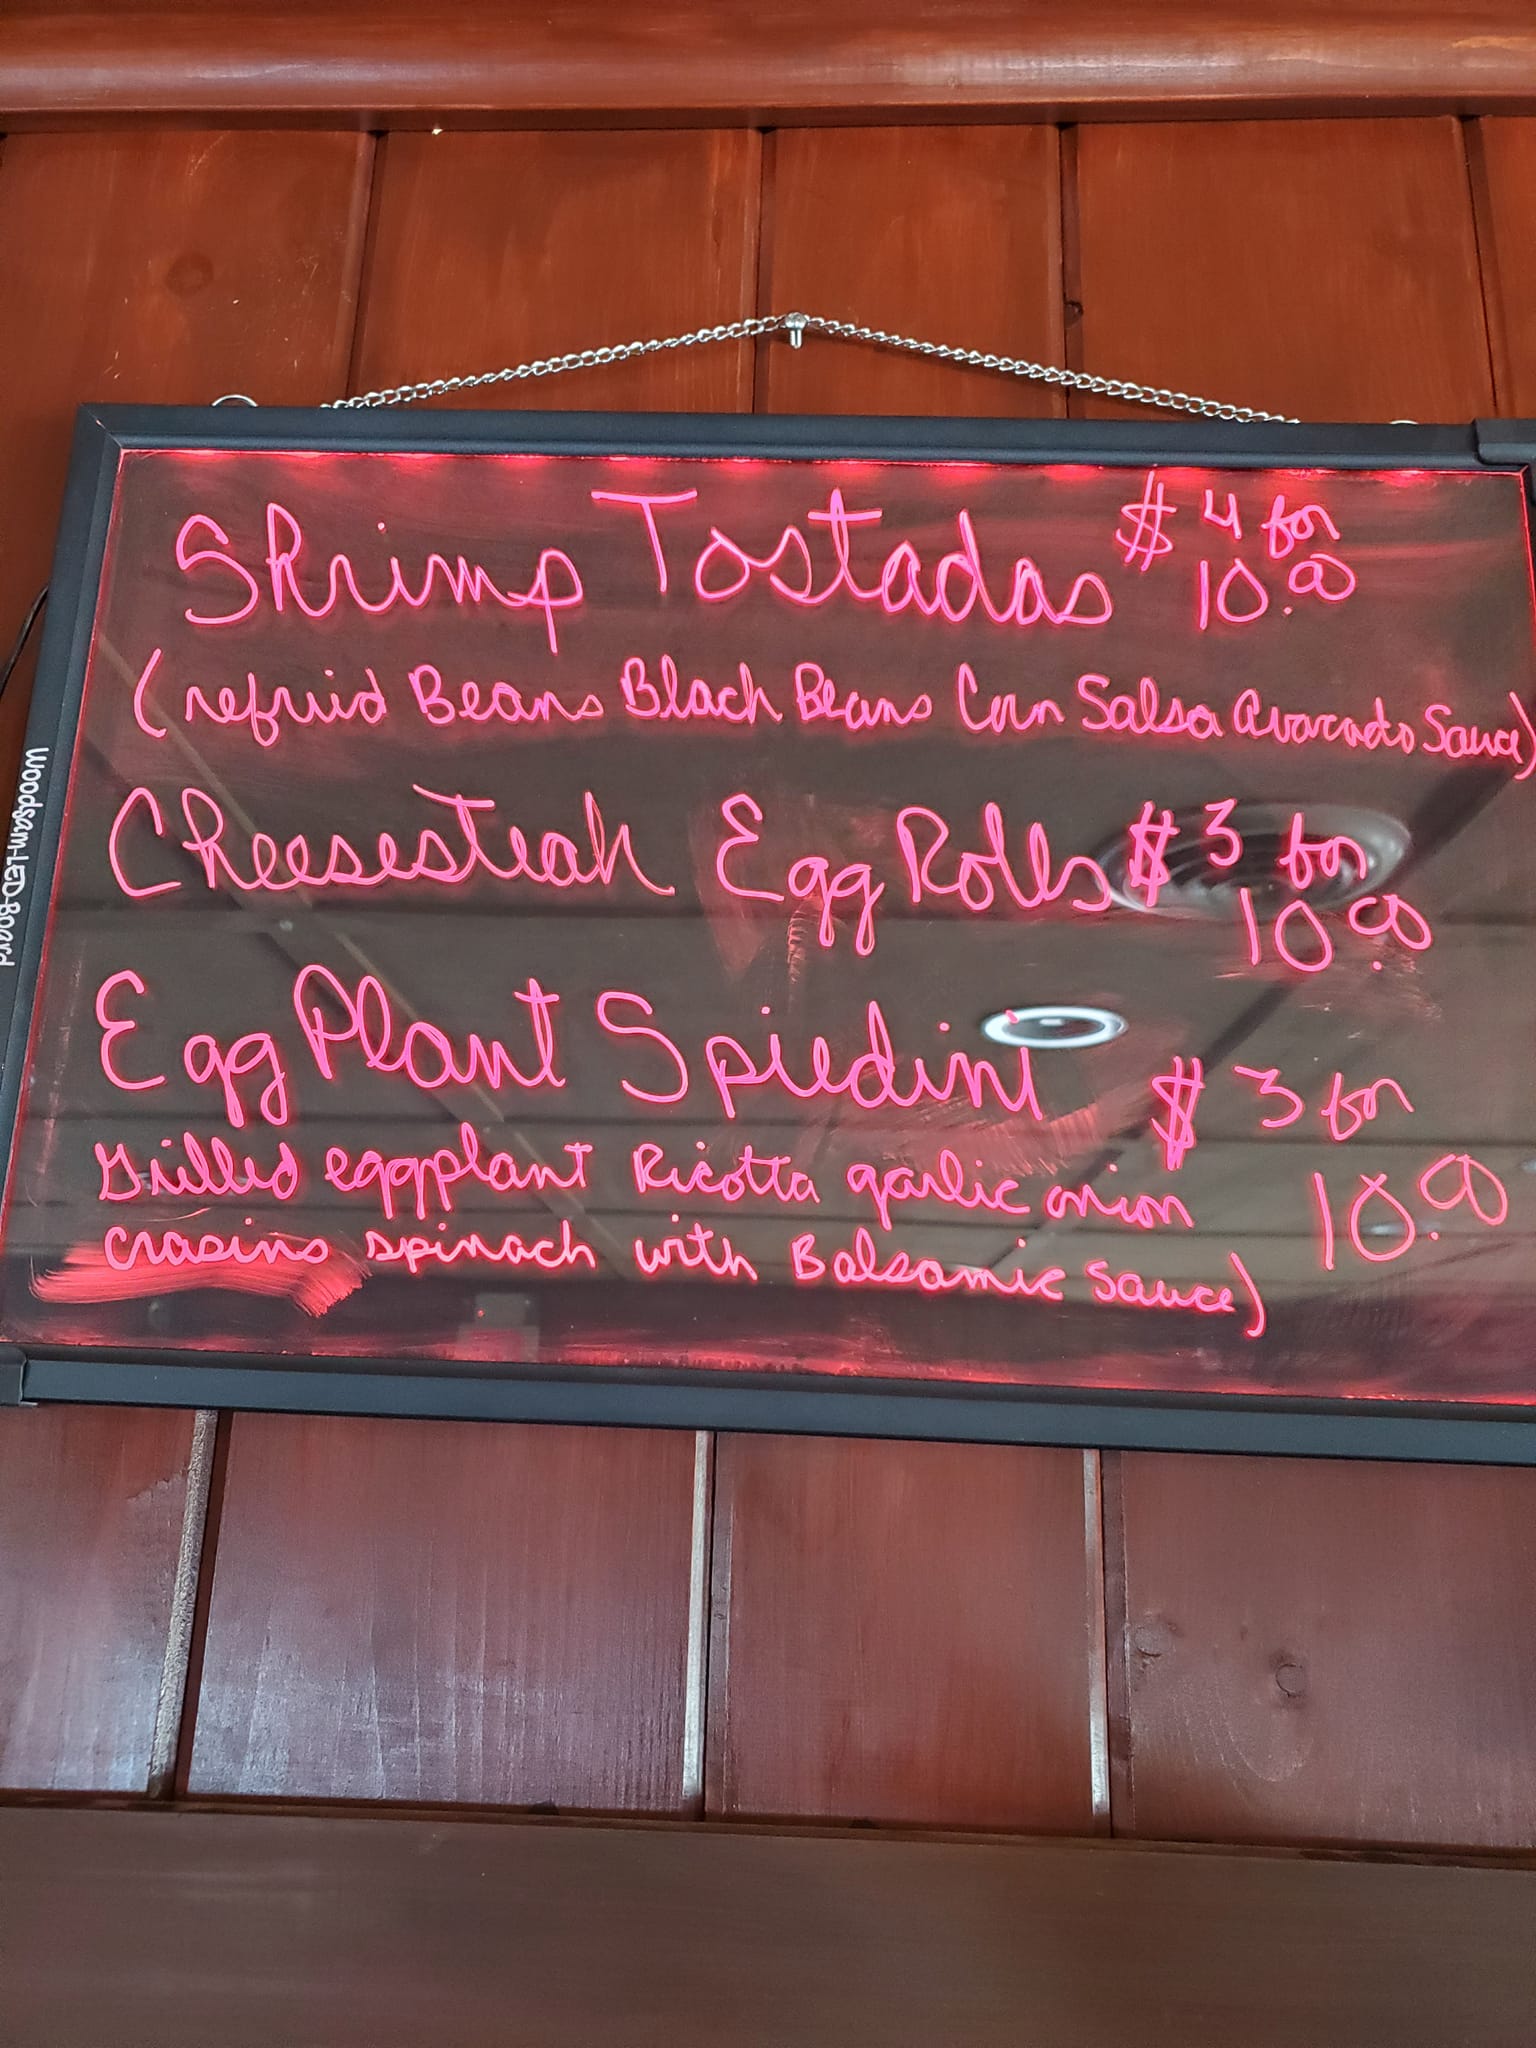 Shrimp Tostadas $ 4 for
10.00
(refruid Beans Black Beans Corn Salsa Avacado Sauce)
Cheesesteak Egg Rolls $ 3 for
10.00
Egg Plant Spiedini $ 3 for
10.00
Grilled eggplant Ricotta garlic onion
crasins spinach with Balsamic Sauce)
Woodsam-LED-Board